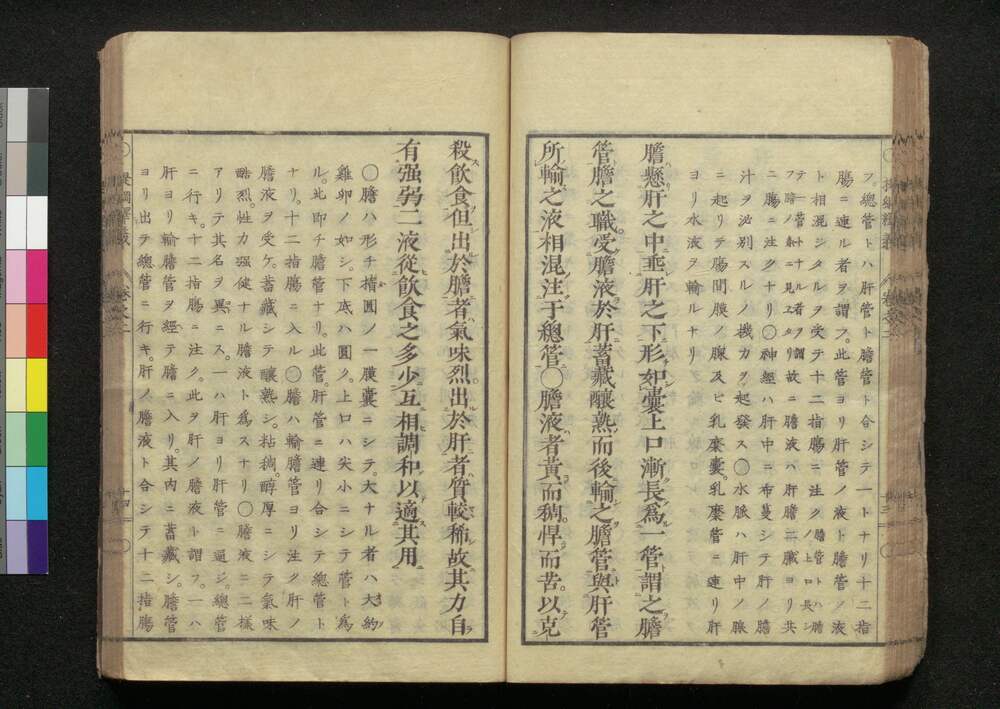 フ。總管トハ肝管ト膽管ト合シテ一トナリ十二指
腸ニ連ル者ヲ謂フ。此管ヨリ肝管ノ液ト膽管ノ液
ト相混シタルヲ受テ十二指腸ニ注ク
膽管トハ膽ノ上口長シ
テ一管トナル者ヲ謂
フ時ノ如ニ見ユタリ故ニ膽液ハ肝膽二臓ヨリ共
ニ腸ニ注クナリ〇神經ハ肝中ニ布蔓シテ肝ノ膽
汁ヲ泌別スルノ機力ヲ起發ス〇水脈ハ肝中ノ腺
ニ起リテ腸間膜ノ腺及ヒ乳糜囊。乳糜管ニ連リ肝
ヨリ水液ヲ輸ルナリ
膽懸肝之中垂肝之下形如囊上口漸長爲一管謂之膽
管膽之職受膽液於肝蓄藏釀熟而後輸之膽管與肝管
所輸之液相混注于總管〇膽液者黃而稠。悍而苦。以克
殺飲食但出於膽者氣味烈出於肝者質較稀故其力自
有强弱二液從飲食之多少互相調和以適其用
〇膽ハ形チ楕圓ノ一膜囊ニシテ。大ナル者ハ大約
雞卵ノ如シ。下底ハ圓ク。上口ハ尖小ニシテ管ト爲
ル。此即チ膽管ナリ。此管。肝管ニ連リ合シテ總管ト
ナリ。十二指腸ニ入ル〇膽ハ輸膽管ヨリ注ク肝ノ
膽液ヲ受ケ。蓄藏シテ釀熟シ。粘稠。醇厚ニシテ氣味
酷烈。性力强健ナル膽液ト爲スナリ〇膽液ニ二樣
アリテ其名ヲ異ニス。一ハ肝ヨリ肝管ニ通ジ。總管
ニ行キ。十二指腸ニ注ク。此ヲ肝ノ膽液ト謂フ。一ハ
肝ヨリ輸膽管ヲ經テ膽ニ入リ。其内ニ蓄藏シ。膽管
ヨリ出テ總管ニ行キ。肝ノ膽液ト合シテ十二指腸